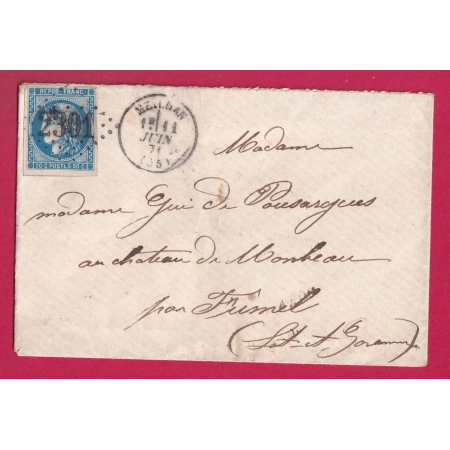 REPUB. FRANC.
2301
20 C. POSTES 20 C.
MEILHAN
1E 11
JUIN
71
(45)
Madame
madame Gui de Pousargues
au chateau de Monbeau
par Fumel
(Lot-et-Garonne)